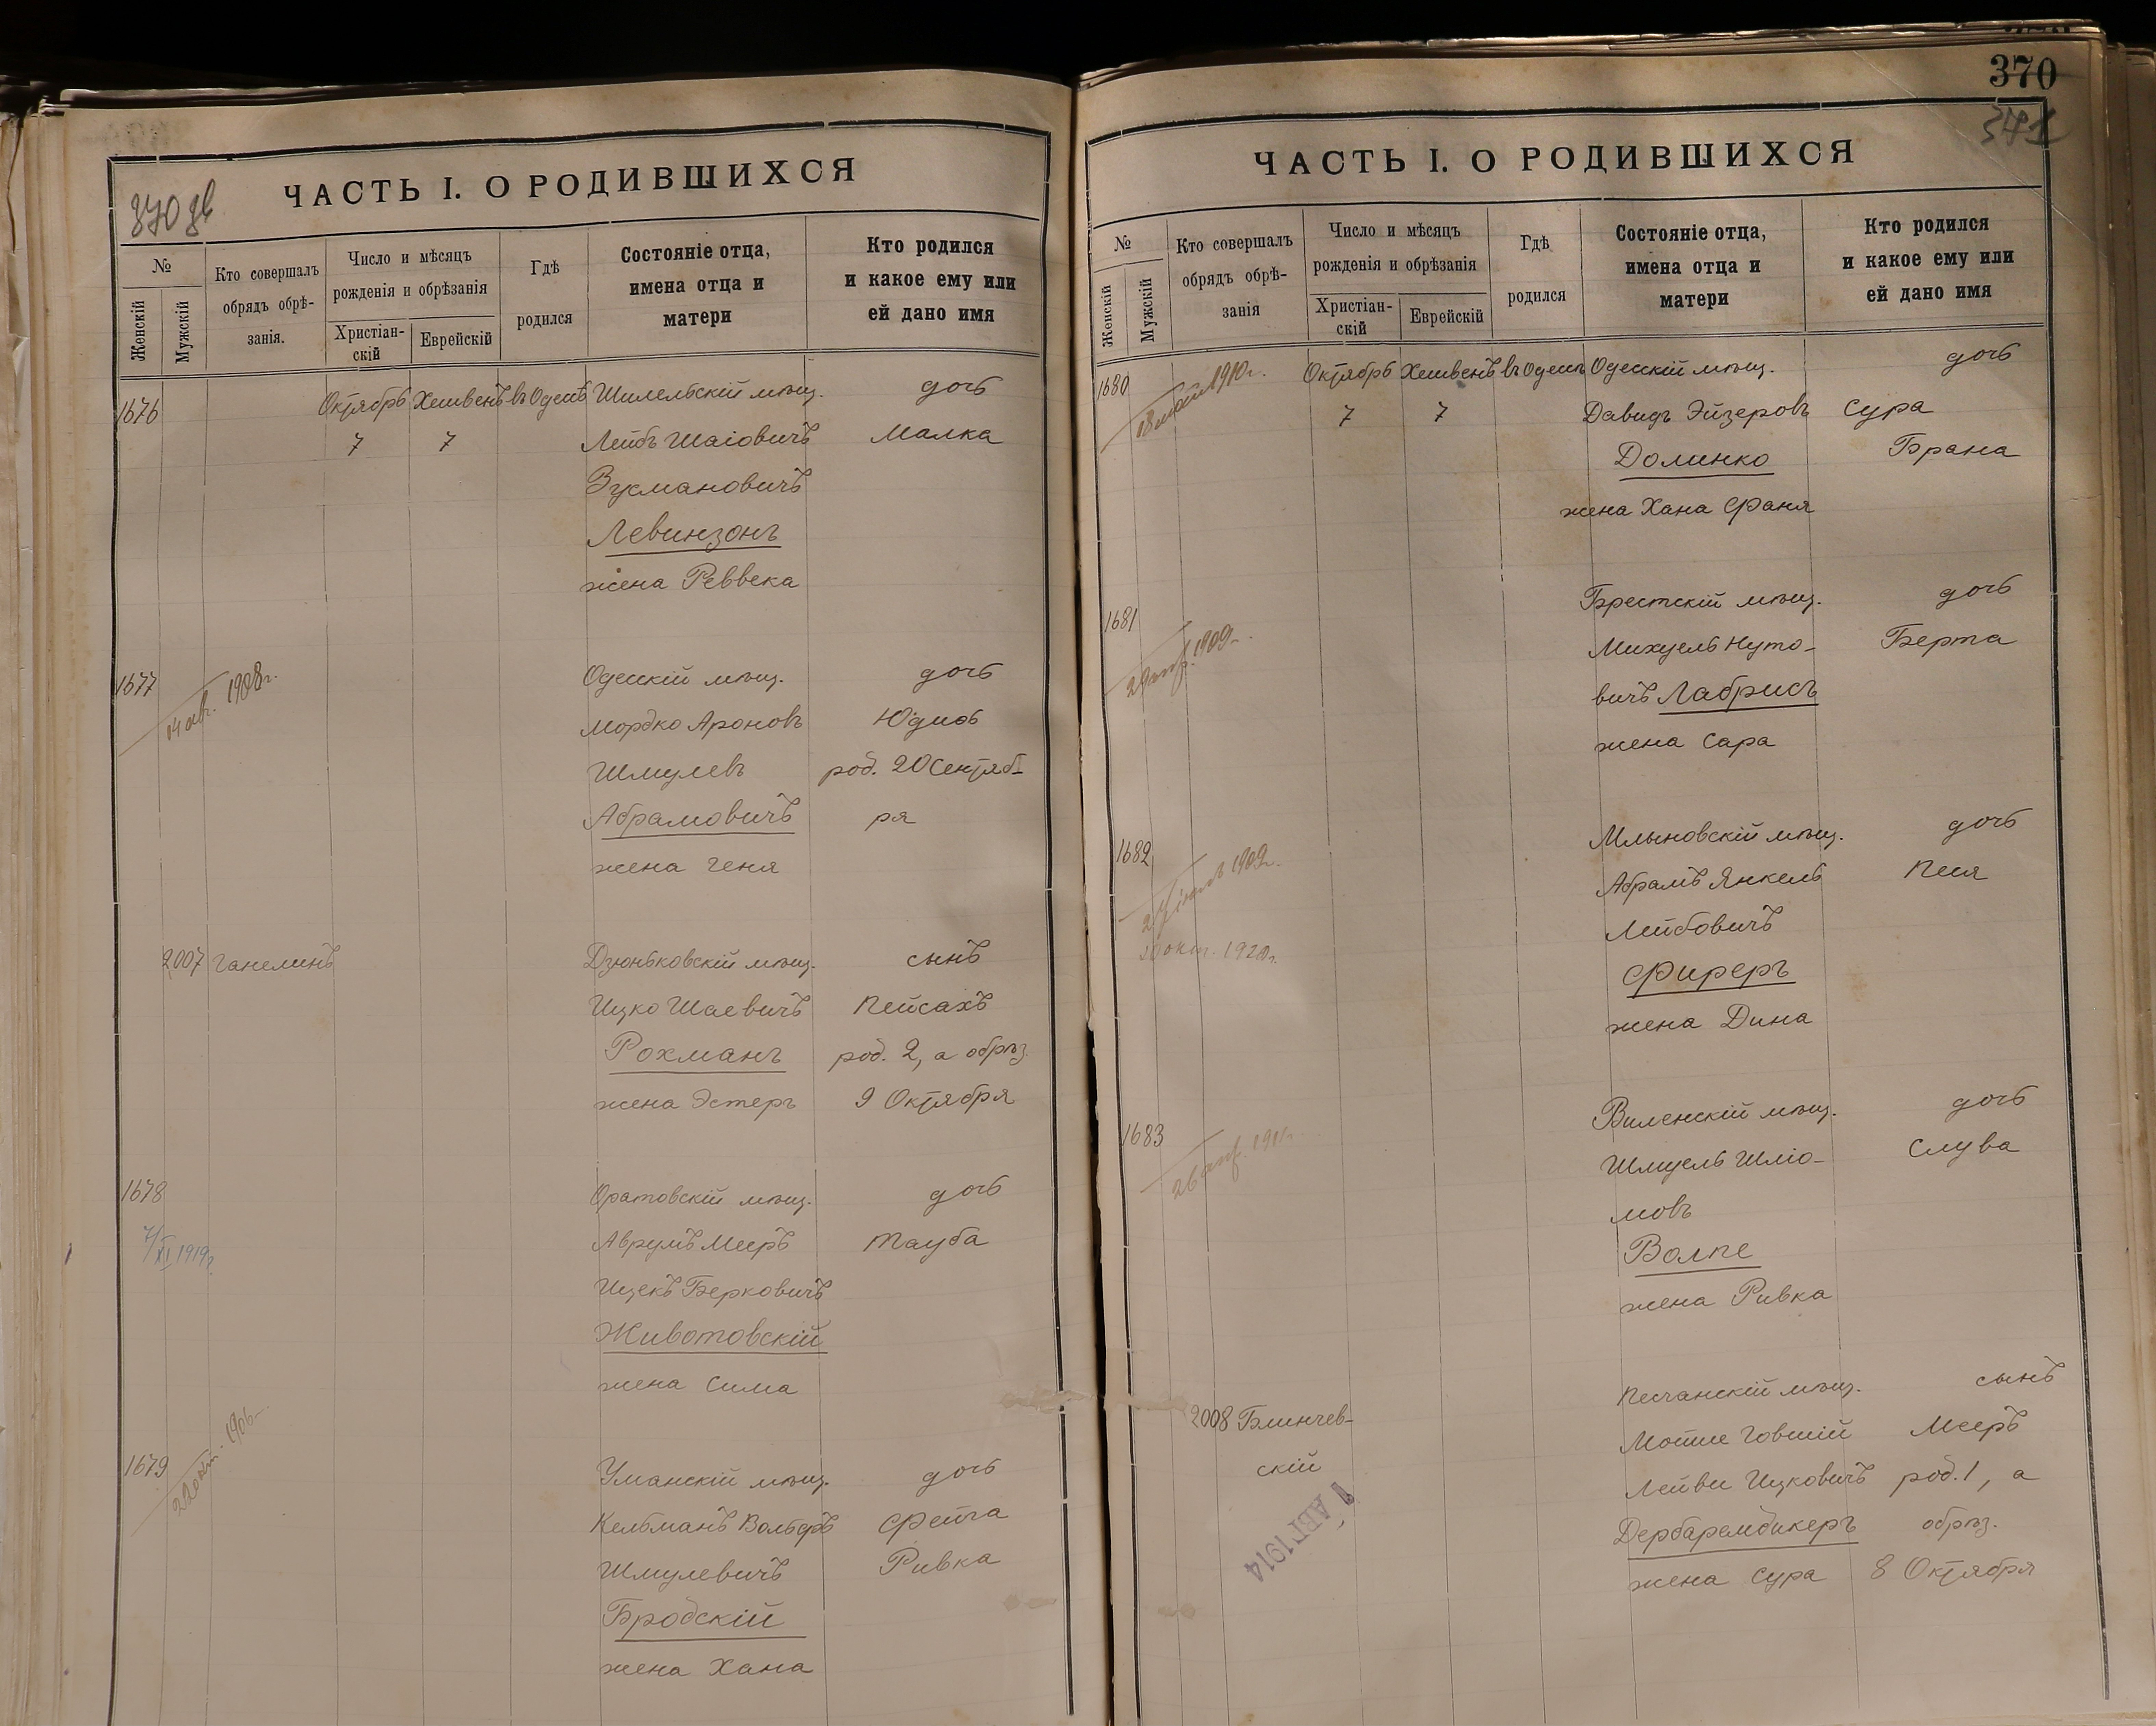 370
341
370 зв
ЧАСТЬ I. О РОДИВШИХСЯ
№
Женскій
Мужскій
Кто совершалъ
обрядъ обрѣ-
занія.
Число и мѣсяцъ
рожденія и обрѣзанія
Христіан-
скій
Еврейскій
Гдѣ
родился
Состояніе отца,
имена отца и
матери
Кто родился
и какое ему или
ей дано имя
1676 Октябрь Хешвенъ въ Одессѣ Шилельскій мѣщ. дочь
7 7 Лейбъ Шаіовичъ Малка
Зусмановичъ
Левинзонъ
жена Реввека
1677 14 авг. 1908 г. Одесскій мѣщ. дочь
Мордко Ароновъ Юдиѳь
Шмулевъ род. 20 Сентяб-
Абрамовичъ ря
жена Геня
2007 Ганелинъ Дзюньковскій мѣщ. сынъ
Ицко Шаевичъ Пейсахъ
Рохманъ род. 2, а обрѣз.
жена Эстеръ 9 Октября
1678 Оратовскій мѣщ. дочь
7/XI 1919 г. Аврумъ Мееръ Тауба
Ицекъ Берковичъ
Животовскій
жена Сима
1679 22 окт. 1906 Уманскій мѣщ. дочь
Кельманъ Вольфъ Фейга
Шмулевичъ Ривка
Бродскій
жена Хана
ЧАСТЬ I. О РОДИВШИХСЯ
№
Женскій
Мужскій
Кто совершалъ
обрядъ обрѣ-
занія
Число и мѣсяцъ
рожденія и обрѣзанія
Христіан-
скій
Еврейскій
Гдѣ
родился
Состояніе отца,
имена отца и
матери
Кто родился
и какое ему или
ей дано имя
1680 18 мая 1910 г. Октябрь Хешвенъ въ Одессѣ Одесскій мѣщ. дочь
7 7 Давидъ Эйзеровъ Сура
Долинко Брана
жена Хана Фаня
1681 Брестскій мѣщ. дочь
1909 Михуель Нуто- Берта
вичъ Лабрисъ
жена Сара
1682 Млыновскій мѣщ. дочь
1909 г. Абрамъ Янкель Песя
20 окт. 1920 г. Лейбовичъ
Фиреръ
жена Дина
1683 Виленскій мѣщ. дочь
26 апр. Шмуель Шліо- Слува
мовъ
Волпе
жена Ривка
2008 Блинчев- Песчанскій мѣщ. сынъ
скій Мотше Говшій Мееръ
1 АВГ 1914 Лейви Ицковичъ род. 1, а
Дербарембикеръ обрѣз.
жена Сура 8 Октября